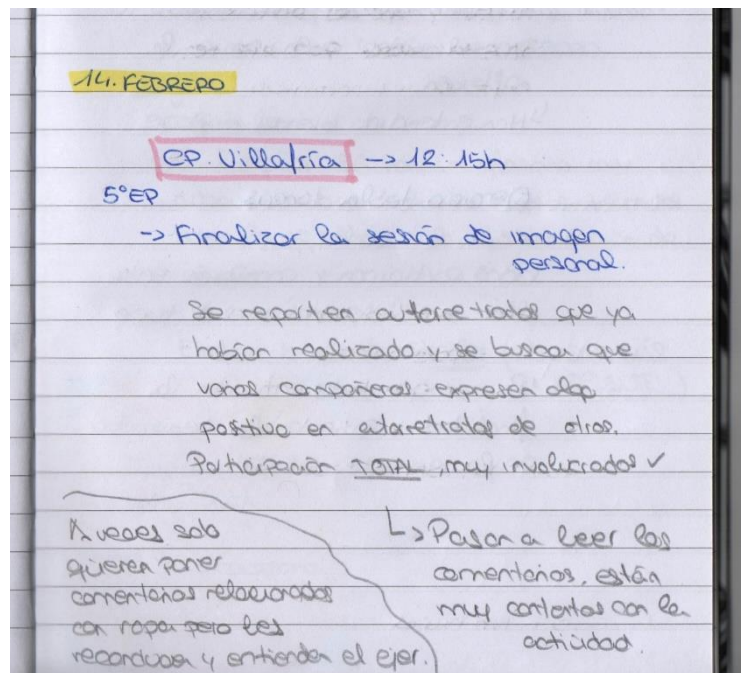 14. FEBRERO
CP. Villafría -> 12:15h
5ºEP
-> Finalizar la sesión de imagen
personal.
Se reparten autorretratos que ya
habían realizado y se busca que
varios compañeros expresen algo
positivo en autorretratos de otros.
Participación TOTAL, muy involucrados ✓
A veces solo
quieren poner
comentarios relacionados
con ropa pero les
reconduce y entienden el ejer.
↳ Pasan a leer los
comentarios, están
muy contentos con la
actividad.